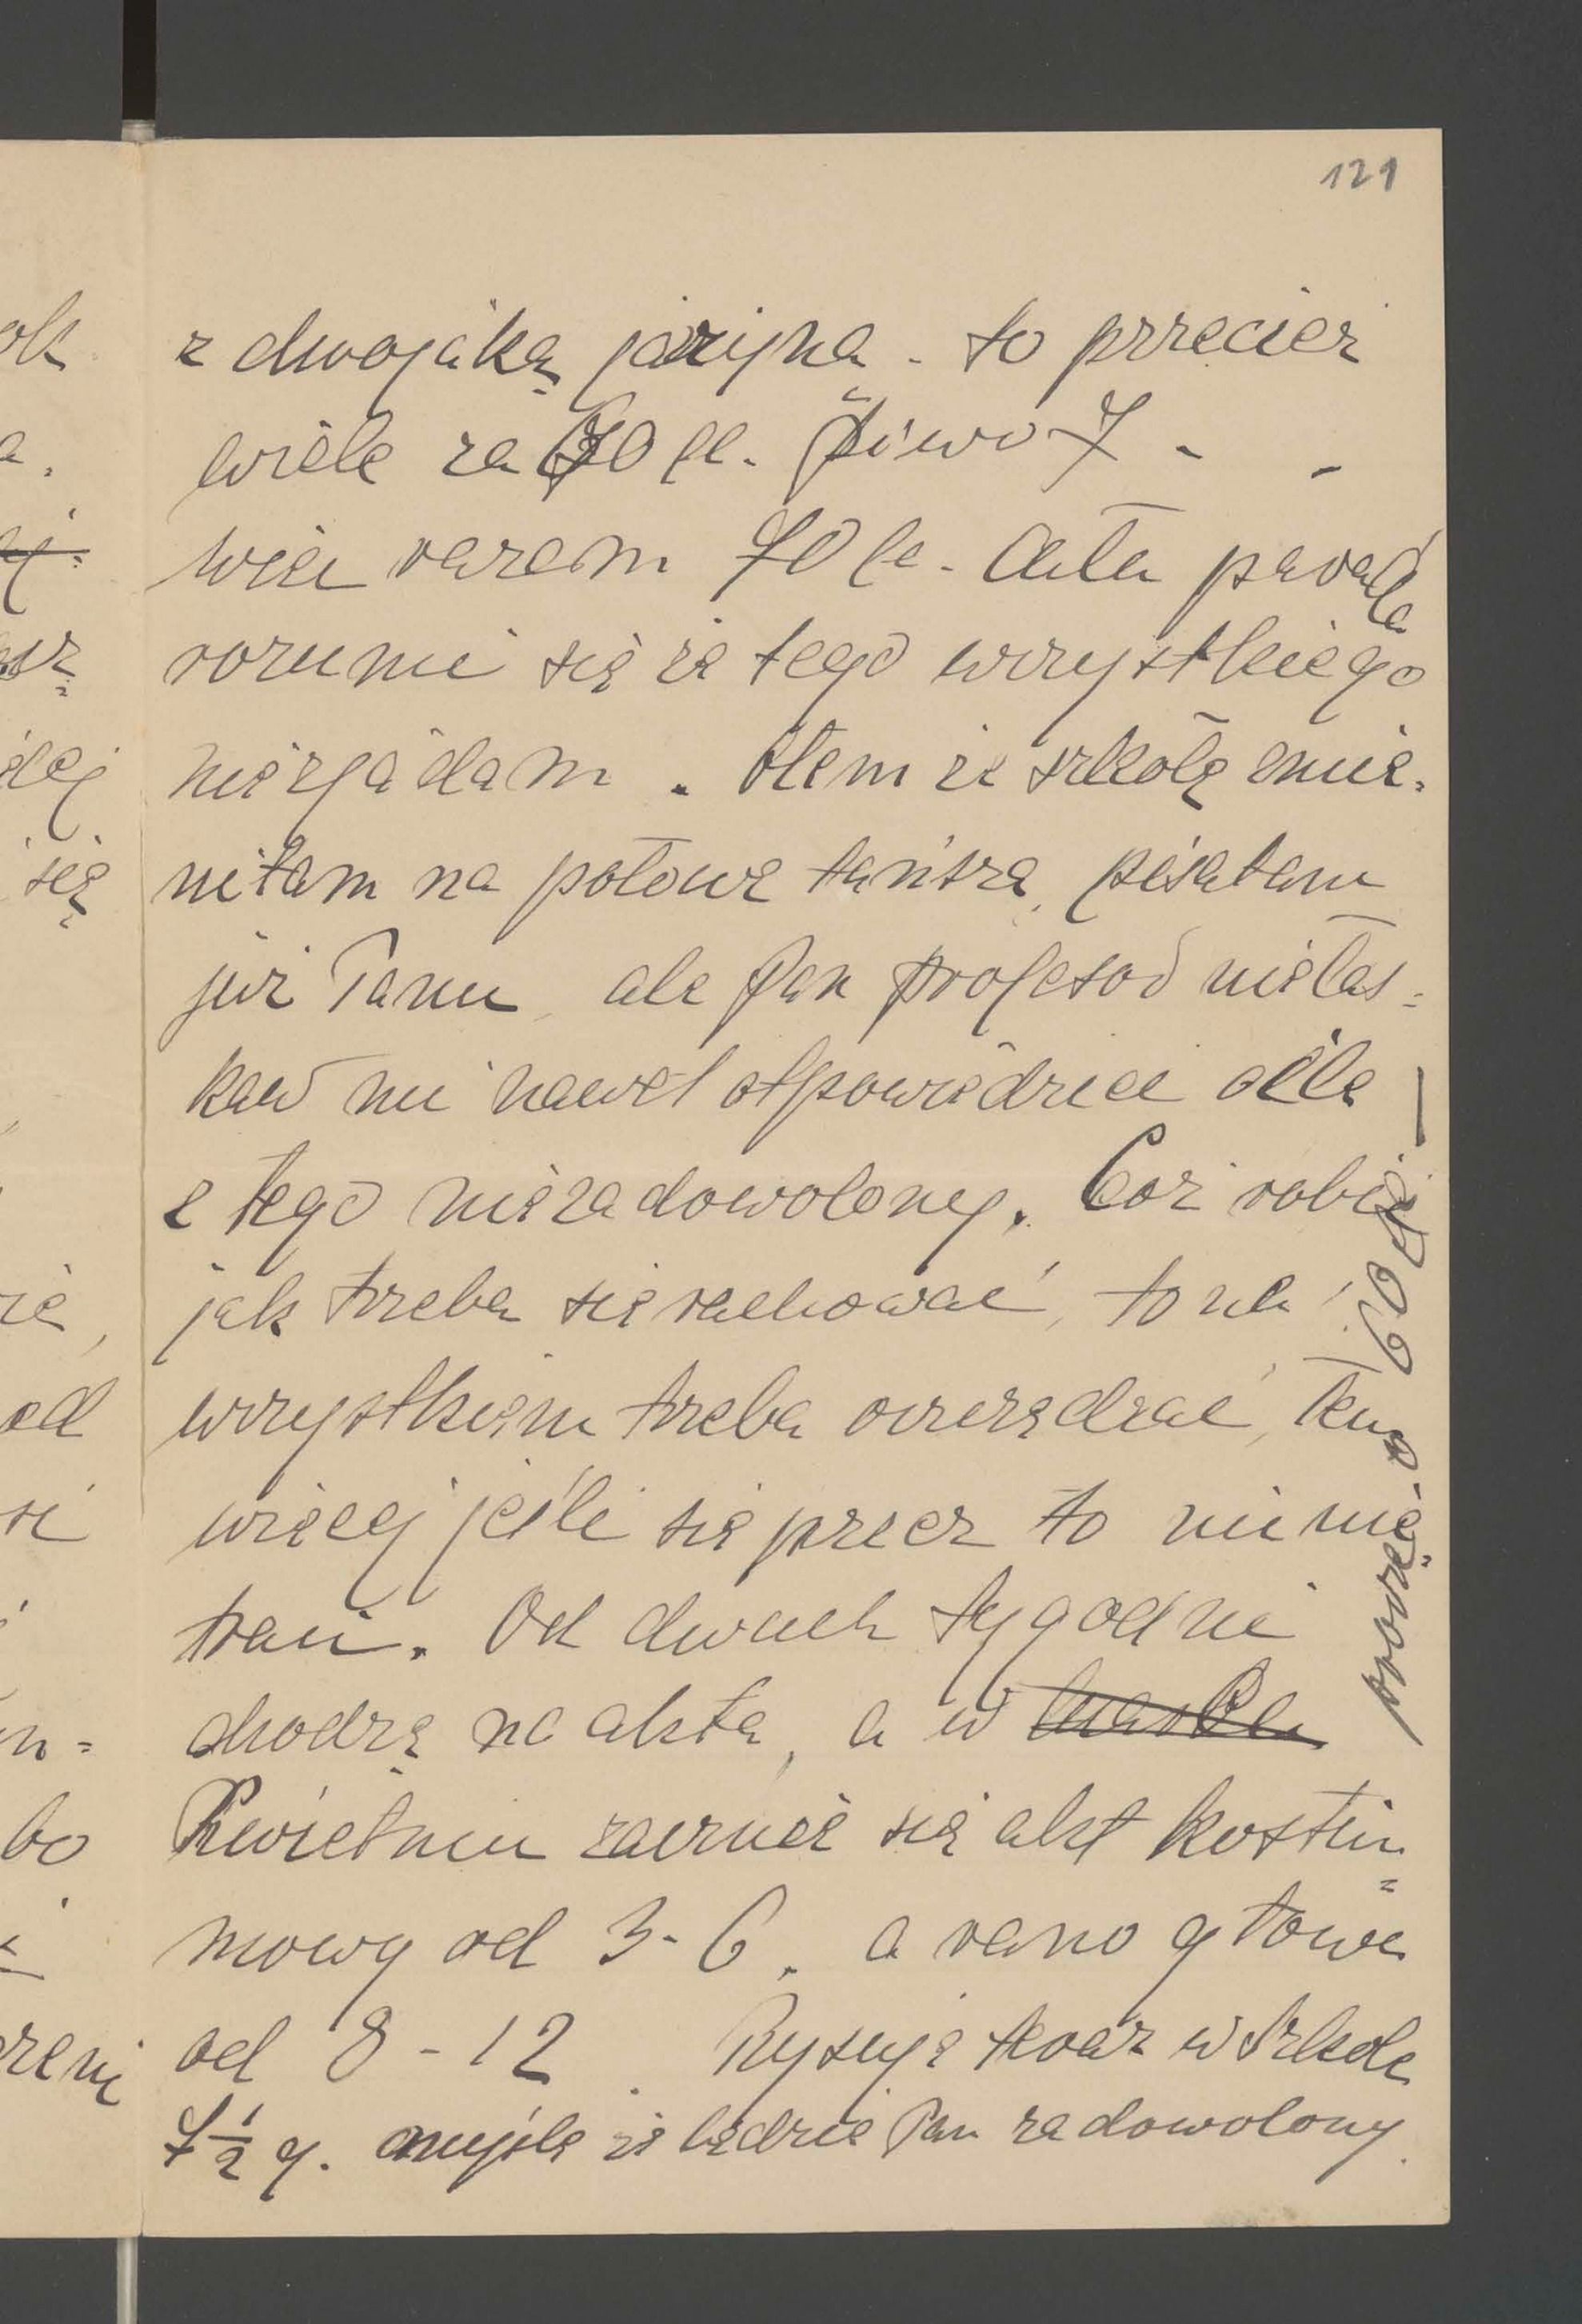 121
z dwojaką jarzyną - to przecież
wiele za 60 fe. Piwo 7 - -
więc razem 70 fe. Cała parada
rozumie się że tego wszystkiego
nie zjadam. Otem że szkołę zmie-
niłam na połowę tańszą, pisałam
już Panu, ale Pan profesor nie łas=
kaw mi nawet otpowiedzieć o ile
z tego niezadowolony. Coż robić
jak trzeba się rachować, to na
wszystkiem trzeba oszczędzać, tem
więcej jeśli się przez to nic nie
traci. Od dwuch tygodni
chodzę na akta, a w
Kwietniu zacznie się akt kostiu=
mowy od 3-6. a rano głowa
od 8-12. Rysuję teraz w szkole
7½ g. myślę że będzie Pan zadowolony.
60